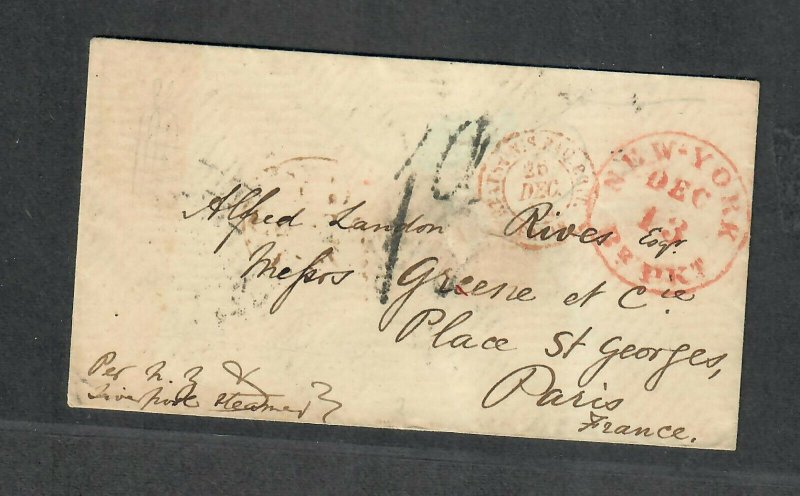 Alfred Landon Rives Esqr.
Messrs Greene et Cie
Place St Georges,
Paris
France.
Per N. Y &
Liverpool steamer
NEW-YORK
DEC
13
BR PKT
26
DEC.